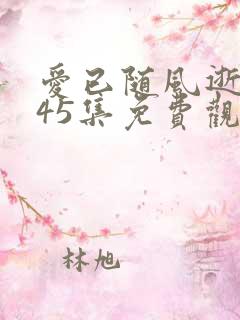 愛已随風逝
45集免費觀
林旭